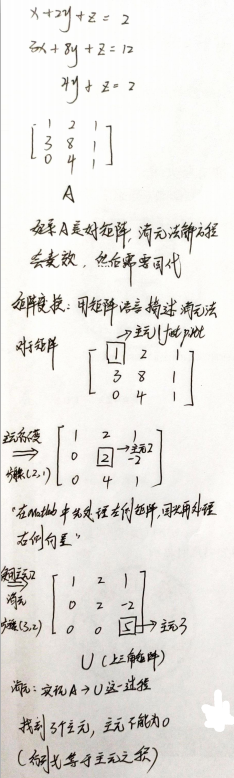 x+2y+z=2
3x+8y+z=12
4y+z=2
[1 2 1
3 8 1
0 4 1]
A
矩阵A是好矩阵,消元法解方程
会奏效,然后需要回代
矩阵变换:用矩阵语言描述消元法
→主元1 first pivot
对于矩阵
[1 2 1
3 8 1
0 4 1]
[1 2 1
0 2 -2 →主元2
0 4 1]
步骤(2,1)
"在Matlab中先处理左侧矩阵,回头再处理
右侧向量"
[1 2 1
0 2 -2
0 0 5] →主元3
消元
步骤(3,2)
U(上三角矩阵)
消元:实现A→U这一过程
找到3个主元,主元不能为0
(行列式等于主元之积)